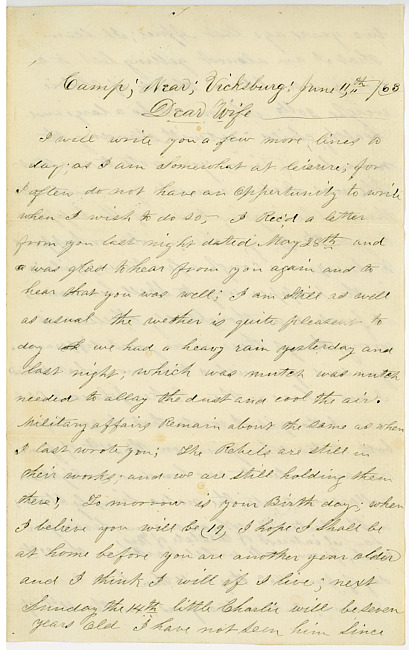 Camp; Near; Vicksburg; June 11th /63
Dear Wife
I will write you a few more lines to
day; as I am somewhat at leisure; for
I often do not have an Opportunity to write
when I wish to do so,- I Rec'd a letter
from you last night dated May 28th and
was glad to hear from you again and to
hear that you was well; I am still as well
as usual the wether is quite pleasent to
day we had a heavy rain yesterday and
last night; which was mutch was mutch
needed to allay the dust and cool the air.
Military affairs Remain about the same as when
I last wrote you; The Rebels are still in
their works; and we are still holding them
there!, To morrow is your Birth day; when
I believe you will be I hope I shall be
at home before you are another year older
and I think I will if I live; next
Sunday the 14th little Charlie will be seven
years old I have not seen him since